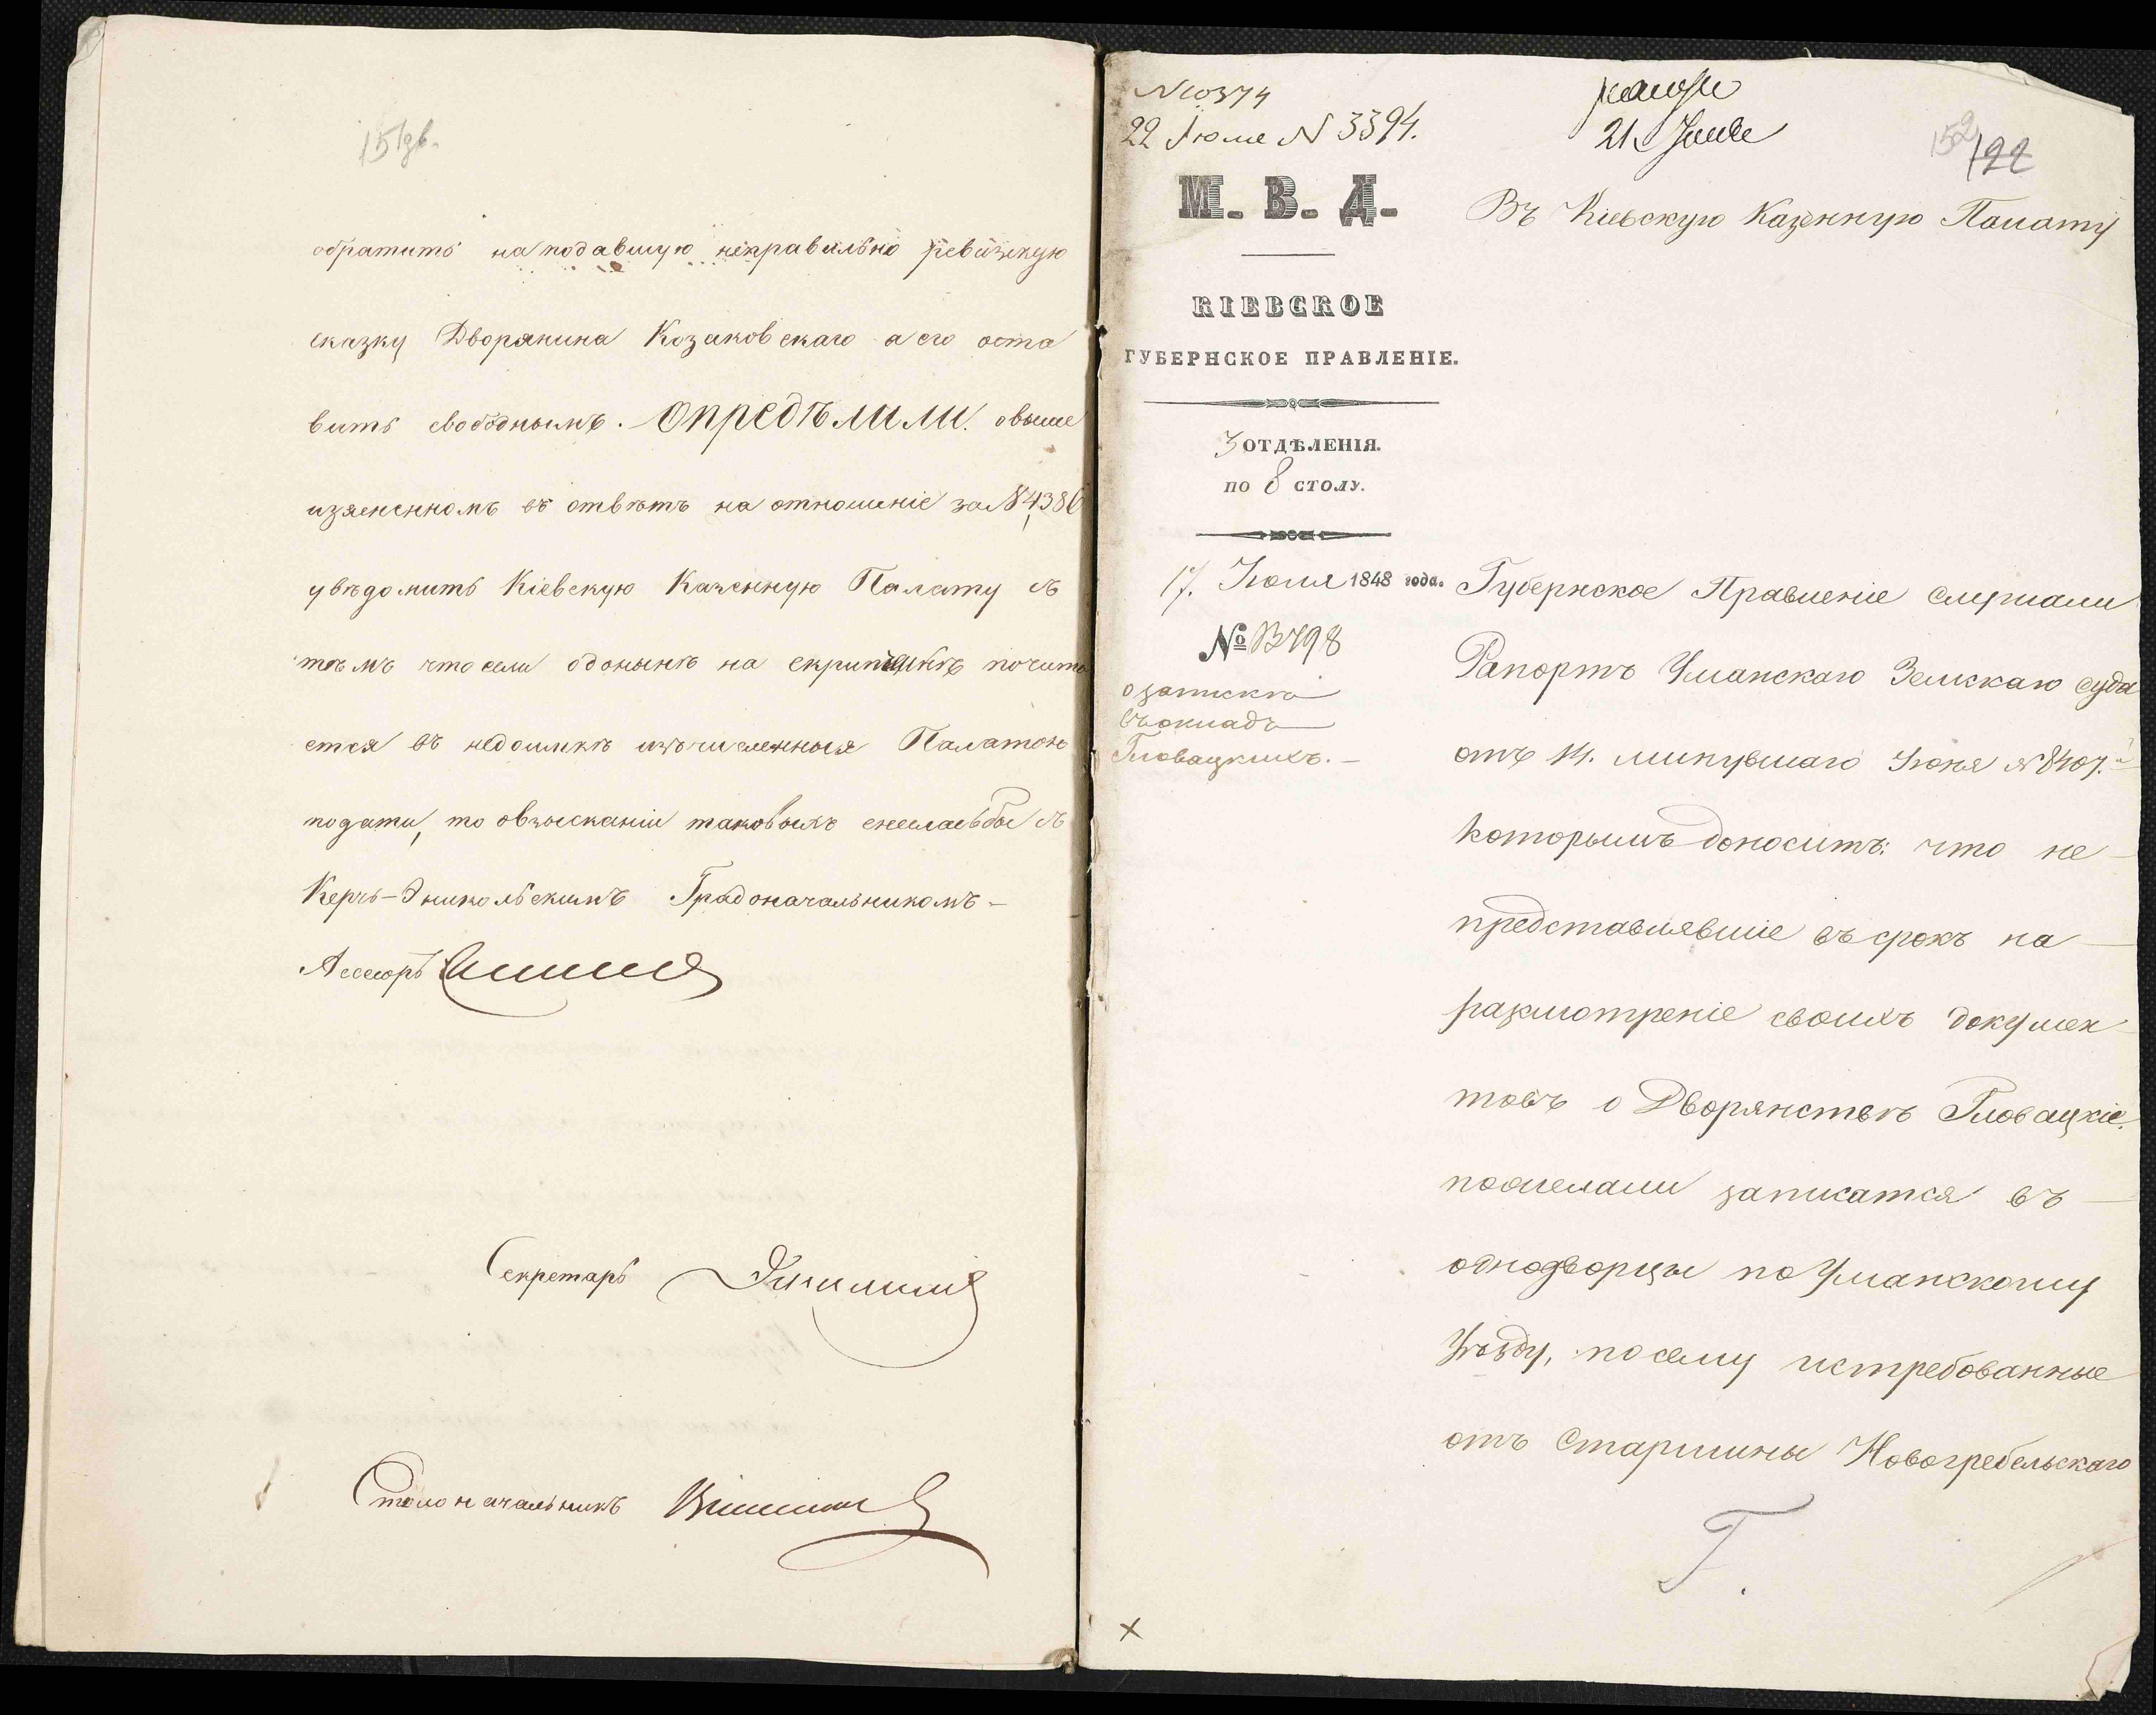 151 об.
обратить на подавшую неправильно ревизскую
сказку Дворянина Козаковскаго а его оста
вить свободнымъ. Опредѣлили о выше
изясненномъ въ отвѣтъ на отношеніе за № 4386
увѣдомить Кіевскую Казенную Палату съ
тѣмъ что если
на
почита
ется въ недоимкѣ изчисленныя Палатою
подати, то о взысканіи таковыхъ снеслась бы съ
Керчь-Эникольскимъ Градоначальникомъ-
Ассесоръ
Секретарь
Столоначальникъ
№ 10374
22 Іюля № 3394.
21 Іюля
152
122
М. В. Д.
Въ Кіевскую Казенную Палату
КІЕВСКОЕ
ГУБЕРНСКОЕ ПРАВЛЕНІЕ.
3 ОТДѢЛЕНІЯ.
ПО 8 СТОЛУ.
17. Іюля 1848 года.
№ 13798
о запискѣ
въ окладъ
Гловацкихъ. -
Губернское Правленіе слушали
Рапортъ Уманскаго Земскаго суда
отъ 14. минувшаго Іюня № 8407.
которымъ доноситъ: что не-
представлявшіе въ срокъ на-
разсмотреніе своихъ докумен-
товъ о Дворянствѣ Гловацкіе.
пожелали записатся въ-
однодворцы по Уманскому
Уѣзду, по сему истребованные
отъ Старшины Новогребельскаго
Г.